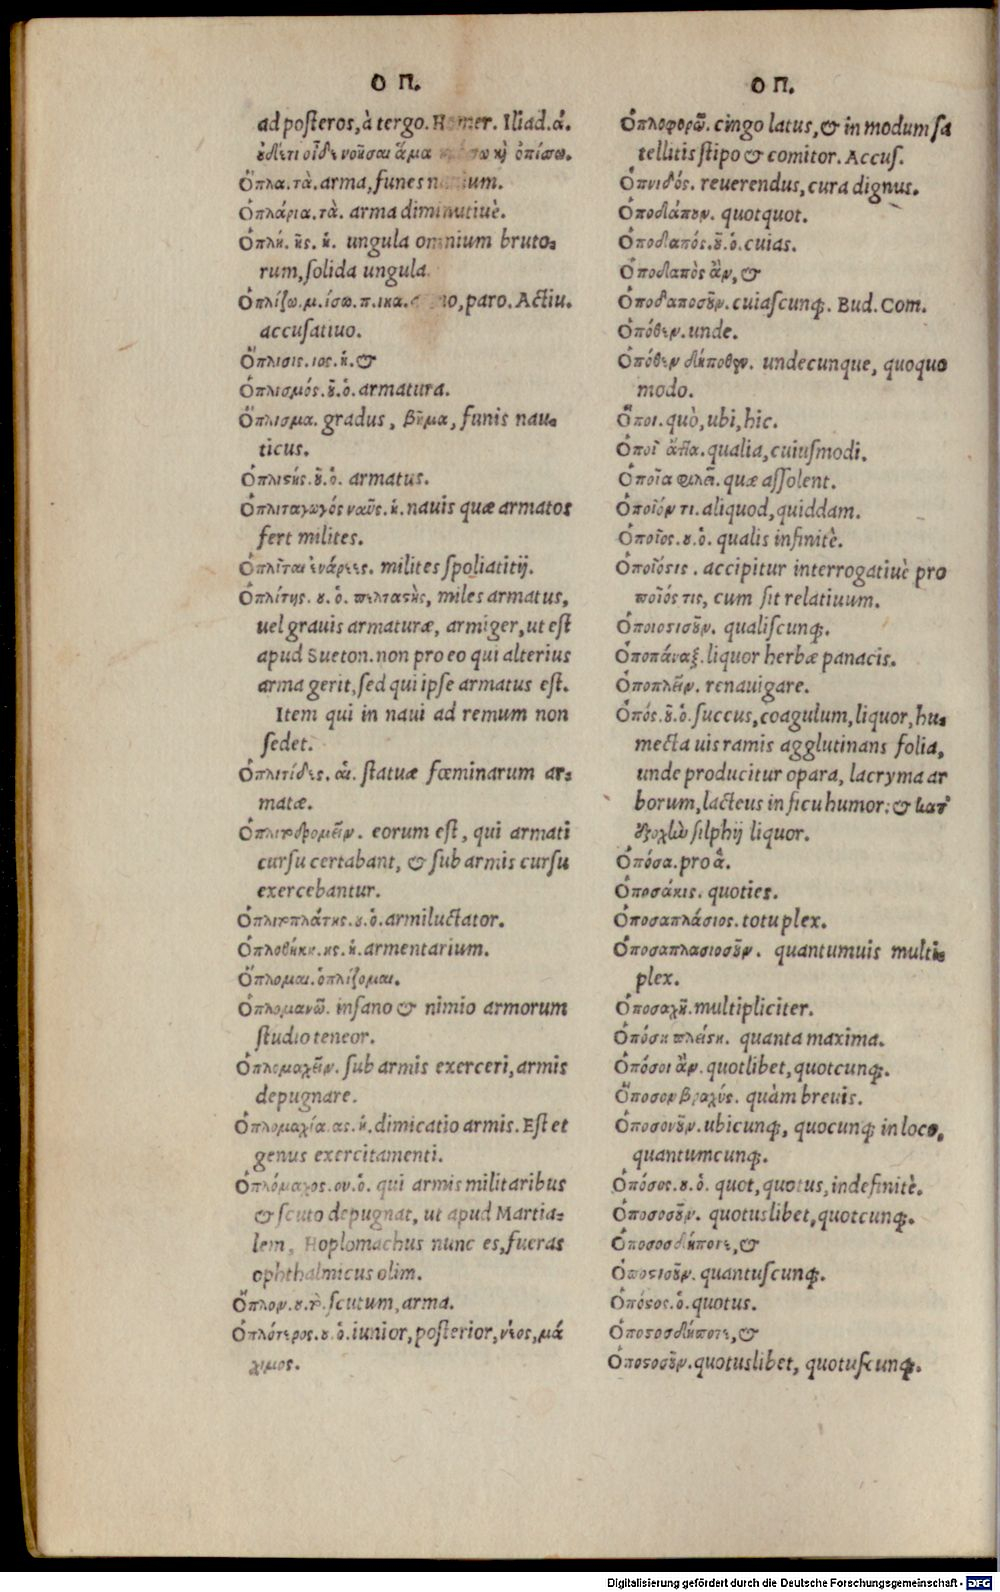 Ο Π.
ad posteros, à tergo. Homer. Iliad. ά.
ὀδέτι οἶδε νοῆσαι ἅμα πρόσω κὶ ὀπίσσω.
Ὅπλα. τὰ. arma, funes nauium.
Ὁπλάρια. τὰ. arma diminutiuè.
Ὁπλή. ῆς. ἡ. ungula omnium bruto-
rum, solida ungula.
Ὁπλίζω. μ. ίσω. π. ικα. paro. Actiu.
accusatiuo.
Ὅπλισις. ιος. ἡ. &
Ὁπλισμός. οῦ. ὁ. armatura.
Ὅπλισμα. gradus, βῆμα, funis nau-
ticus.
Ὁπλιστής. οῦ. ὁ. armatus.
Ὁπλιταγωγός ναῦς. ἡ. nauis quæ armatos
fert milites.
Ὁπλῖται ἐνάρεες. milites spoliatitij.
Ὁπλίτης. ου. ὁ. πελταστὴς, miles armatus,
uel grauis armaturæ, armiger, ut est
apud Sueton. non pro eo qui alterius
arma gerit, sed qui ipse armatus est.
Item qui in naui ad remum non
sedet.
Ὁπλιτίδες. αἱ. statuæ fœminarum ar-
matæ.
Ὁπλιτοδρομεῖν. eorum est, qui armati
cursu certabant, & sub armis cursu
exercebantur.
Ὁπλιτοπλάτης. ου. ὁ. armiluctator.
Ὁπλοθήκη. ης. ἡ. armentarium.
Ὅπλομαι. ὁπλίζομαι.
Ὁπλομανῶ. insano & nimio armorum
studio teneor.
Ὁπλομαχεῖν. sub armis exerceri, armis
depugnare.
Ὁπλομαχία. ας. ἡ. dimicatio armis. Est et
genus exercitamenti.
Ὁπλόμαχος. ου. ὁ. qui armis militaribus
& scuto depugnat, ut apud Martia-
lem, Hoplomachus nunc es, fueras
ophthalmicus olim.
Ὅπλον. ου. τὸ. scutum, arma.
Ὁπλότερος. ου. ὁ. iunior, posterior, νέος, μά
χιμος.
Ο Π.
Ὁπλοφορῶ. cingo latus, & in modum sa
tellitis stipo & comitor. Accus.
Ὀπνιδός. reuerendus, cura dignus.
Ὁποδάπουν. quotquot.
Ὁποδαπός. οῦ. ὁ. cuias.
Ὁποδαπὸς ἂν, &
Ὁποδαποσοῦν. cuiascunq;. Bud. Com.
Ὁπόθεν. unde.
Ὁπόθεν δήποθεν. undecunque, quoquo
modo.
Ὅποι. quò, ubi, hic.
Ὁποῖ ἄττα. qualia, cuiusmodi.
Ὁποῖα φιλεῖ. quæ assolent.
Ὁποῖόν τι. aliquod, quiddam.
Ὁποῖος. ου. ὁ. qualis infinitè.
Ὁποῖόστις. accipitur interrogatiuè pro
ποῖός τις, cum sit relatiuum.
Ὁποιοστισοῦν. qualiscunq;.
Ὀποπάναξ. liquor herbæ panacis.
Ὀποπλεῖν. renauigare.
Ὀπός. οῦ. ὁ. succus, coagulum, liquor, hu-
mecta uis ramis agglutinans folia,
unde producitur opara, lacryma ar
borum, lacteus in ficu humor: & κατ'
ἐξοχὼ silphij liquor.
Ὁπόσα. pro ἃ.
Ὁποσάκις. quoties.
Ὁποσαπλάσιος. totuplex.
Ὁποσαπλασιοσοῦν. quantumuis multi-
plex.
Ὁποσαχῆ. multipliciter.
Ὁπόση πλείστη. quanta maxima.
Ὁπόσοι ἂν. quotlibet, quotcunq;.
Ὅποσον βραχύς. quàm breuis.
Ὁποσονοῦν. ubicunq;, quocunq; in loco,
quantumcunq;.
Ὁπόσος. ου. ὁ. quot, quotus, indefinitè.
Ὁποσοσοῦν. quotuslibet, quotcunq;.
Ὁποσοσδήποτε, &
Ὁποστισοῦν. quantuscunq;.
Ὁπόστος. ὁ. quotus.
Ὁποστοσδήποτε, &
Ὁποστοσοῦν. quotuslibet, quotuscunq;.
Digitalisierung gefördert durch die Deutsche Forschungsgemeinschaft - DFG